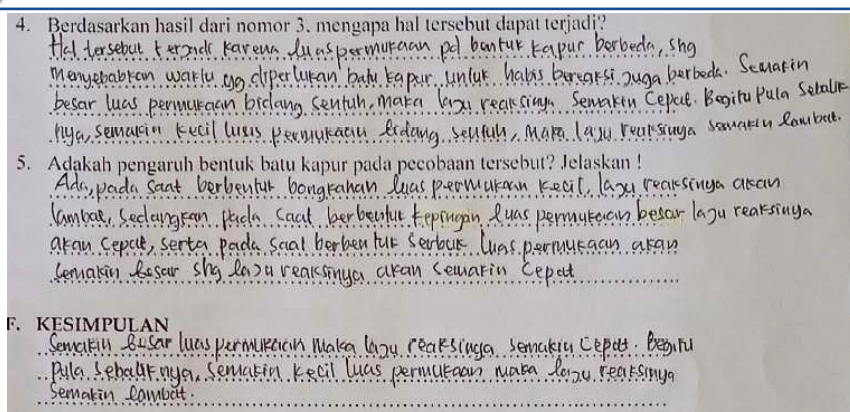 4. Berdasarkan hasil dari nomor 3. mengapa hal tersebut dapat terjadi?
Hal tersebut terjadi karena luas permukaan pd bentuk kapur berbeda, shg
menyebabkan waktu yg diperlukan batu kapur untuk habis bereaksi juga berbeda. Semakin
besar luas permukaan bidang sentuh, maka laju reaksinya semakin cepat. Begitu pula sebalik
nya, semakin kecil luas permukaan bidang sentuh, maka laju reaksinya semakin lambat.
5. Adakah pengaruh bentuk batu kapur pada pecobaan tersebut? Jelaskan !
Ada, pada saat berbentuk bongkahan luas permukaan kecil, laju reaksinya akan
lambat, sedangkan pada saat berbentuk kepingan luas permukaan besar laju reaksinya
akan cepat, serta pada saat berbentuk serbuk luas permukaan akan
semakin besar shg laju reaksinya akan semakin cepat
F. KESIMPULAN
Semakin besar luas permukaan maka laju reaksinya semakin cepat. Begitu
pula sebaliknya, semakin kecil luas permukaan maka laju reaksinya
semakin lambat.